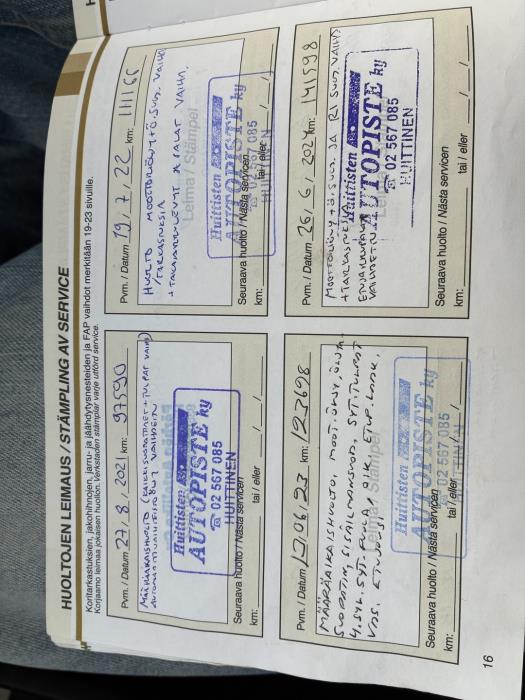 HUOLTOJEN LEIMAUS / STÄMPLING AV SERVICE
Koritarkastuksien, jakohihnojen, jarru- ja jäähdytysnesteiden ja FAP vaihdot merkitään 19-23 sivuille.
Korjaamo leimaa jokaisen huollon. Verkstaden stämplar varje utförd service.
Pvm. / Datum 27 / 8 / 2021 km: 97590
MÄÄRÄAIKAISHUOLTO
Huittisten
AUTOPISTE ky
☎ 02 567 085
HUITTINEN
Seuraava huolto / Nästa servicen
km: tai / eller / /
Pvm. / Datum 19 / 7 / 22 km: 111166
HUOLTO MOOTTORIÖLJY+Ö.SUOD. VAIHD
/TARKASTUKSIA
Leima / Stämpel
Huittisten
AUTOPISTE ky
☎ 02 567 085
HUITTINEN
Seuraava huolto / Nästa servicen
km: tai / eller / /
Pvm. / Datum 12 / 06 / 23 km: 123698
MÄÄRÄAIKAISHUOLTO, MOOT. ÖLJY,
SUODATIN, SISÄILMANSUOD, SYT.TULPAT
4. SYL. SYT. PUOLA
Leima / Stämpel
Huittisten
AUTOPISTE ky
☎ 02 567 085
HUITTINEN
Seuraava huolto / Nästa servicen
km: tai / eller / /
Pvm. / Datum 26 / 6 / 2024 km: 141598
MOOTTORIÖLJY + Ö. SUOD. JA R. SUOD. VAIHD
Huittisten
AUTOPISTE ky
☎ 02 567 085
HUITTINEN
Seuraava huolto / Nästa servicen
km: tai / eller / /
16